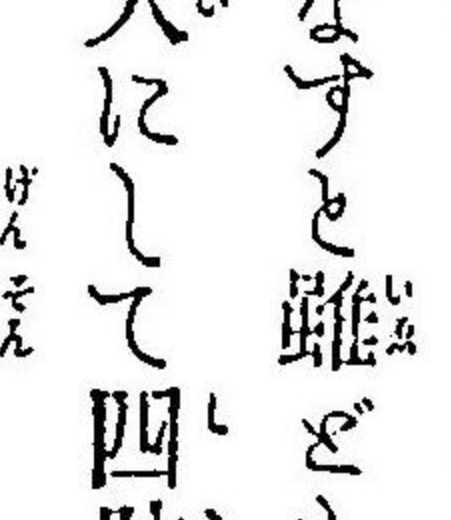 なすと雖ど
いゑ
にして四
し
げんそん